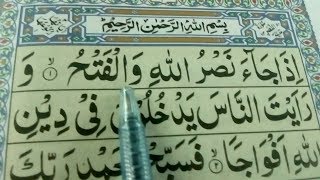 بِسْمِ اللهِ الرَّحْمٰنِ الرَّحِيْمِ
اِذَا جَآءَ نَصْرُ اللهِ وَالْفَتْحُ ۙ۱ وَ
رَاَيْتَ النَّاسَ يَدْخُلُوْنَ فِىْ دِيْنِ
اللهِ اَفْوَاجًا ۙ۲ فَسَبِّحْ بِحَمْدِ رَبِّكَ